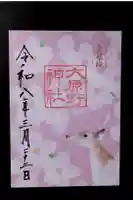 大原野
神社
令和八年三月二十二日